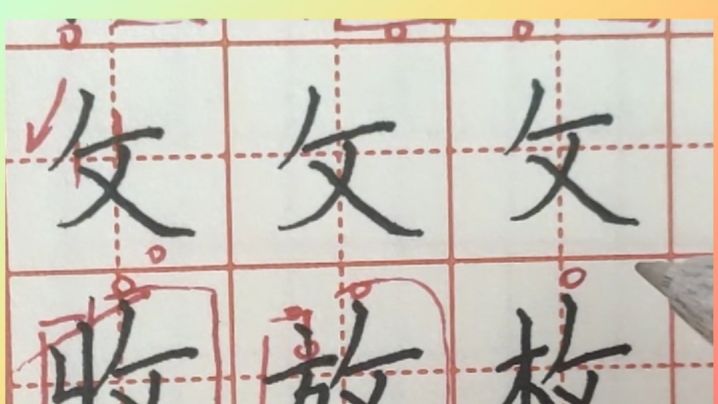 攵 攵 攵
收 放 枚